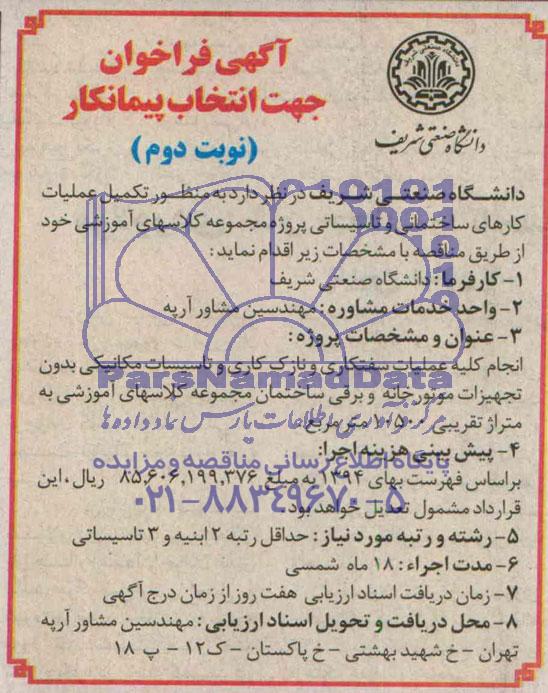 آگهی فراخوان
جهت انتخاب پیمانکار
(نوبت دوم)
دانشگاه صنعتی شریف
دانشگاه صنعتی شریف در نظر دارد به منظور تکمیل عملیات
کارهای ساختمانی و تاسیساتی پروژه مجموعه کلاسهای آموزشی خود
از طریق مناقصه با مشخصات زیر اقدام نماید:
۱- کارفرما: دانشگاه صنعتی شریف
۲- واحد خدمات مشاوره: مهندسین مشاور آرپه
۳- عنوان و مشخصات پروژه:
انجام کلیه عملیات سفتکاری و نازک کاری و تاسیسات مکانیکی بدون
تجهیزات موتورخانه و برقی ساختمان مجموعه کلاسهای آموزشی به
متراژ تقریبی ۱۰/۵۰۰ متر مربع.
۴- پیش بینی هزینه اجرا:
براساس فهرست بهای ۱۳۹۴ به مبلغ ۸۵,۶۰۶,۱۹۹,۳۷۶ ریال، این
قرارداد مشمول تعدیل خواهد بود.
۵- رشته و رتبه مورد نیاز: حداقل رتبه ۲ ابنیه و ۳ تاسیساتی
۶- مدت اجراء: ۱۸ ماه شمسی
۷- زمان دریافت اسناد ارزیابی هفت روز از زمان درج آگهی
۸- محل دریافت و تحویل اسناد ارزیابی: مهندسین مشاور آرپه
تهران - خ شهید بهشتی - خ پاکستان - ک۱۲ - پ ۱۸
ParsNamadData
مرکز فرآوری اطلاعات پارس نماد داده ها
پایگاه اطلاع رسانی مناقصه و مزایده
۰۲۱-۸۸۳۴۹۶۷۰-۵